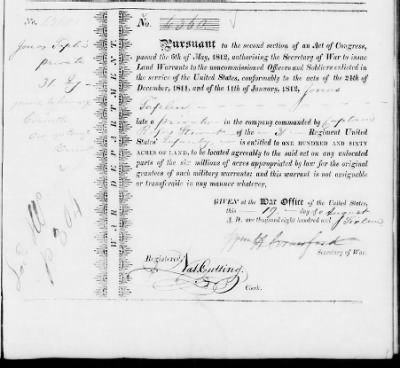 No. 6360
Jonas
private
31
WAR DEPARTMENT.
No. 6360
PURSUANT to the second section of an Act of Congress,
passed the 6th of May, 1812, authorising the Secretary of War to issue
Land Warrants to the noncommissioned Officers and Soldiers enlisted in
the service of the United States, conformably to the acts of the 24th of
December, 1811, and of the 11th of January, 1812, Jonas
late a private in the company commanded by Captain
of the 31 Regiment United
States' Infantry is entitled to ONE HUNDRED AND SIXTY
ACRES OF LAND, to be located agreeably to the said act on any unlocated
parts of the six millions of acres appropriated by law for the original
grantees of such military warrants; and this warrant is not assignable
or transferable in any manner whatever.
GIVEN at the WAR OFFICE of the United States,
this 19 day of August
A. D. one thousand eight hundred and
Wm H Crawford
Secretary of War.
Registered,
Nat Cutting.
Clerk.